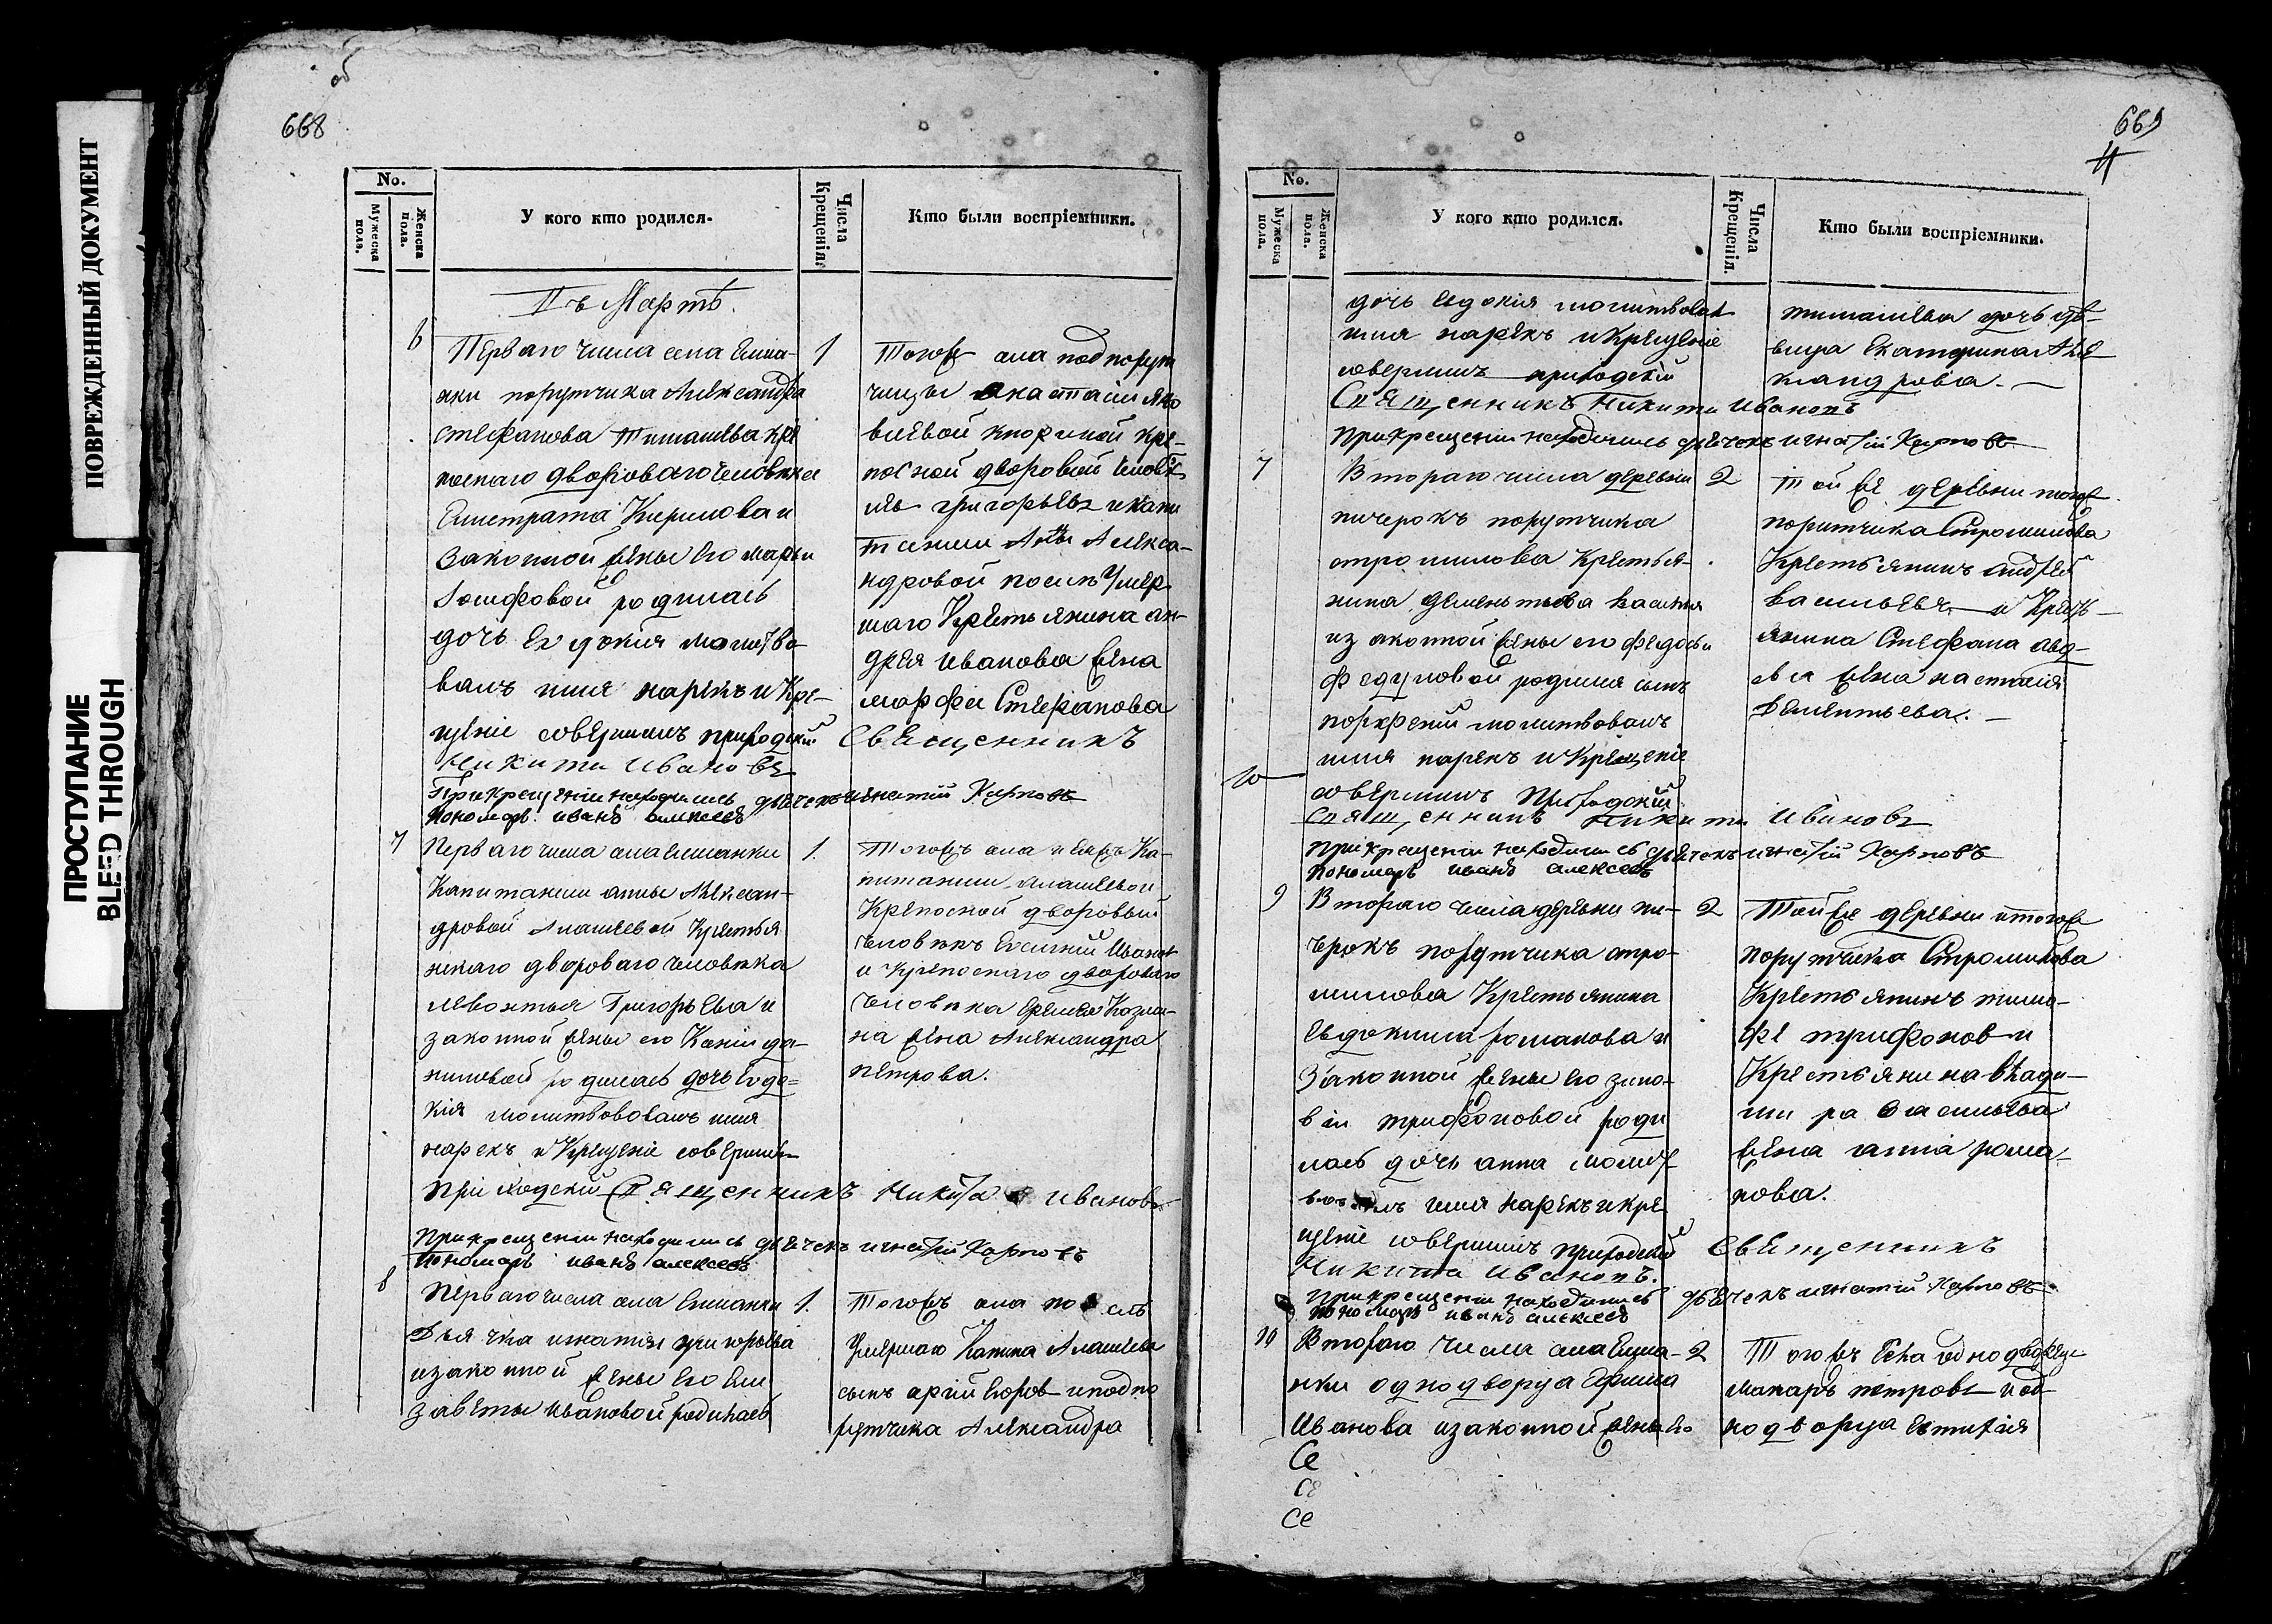 ПОВРЕЖДЕННЫЙ ДОКУМЕНТ
ПРОСТУПАНИЕ
BLEED THROUGH
об
668
No.
Мужеска пола.
Женска пола.
У кого кто родился.
Числа Крещенія.
Кто были воспріемники.
Въ Мартѣ.
6
Перваго числа села Елша-
нки порутчика Александра
Стефанова Тимашева кре
поснаго двороваго человека
Елистрата Кирилова и
законной жены его марьи
Іосифовой родилась
дочь Евдокия молитво
валъ имя нарекъ и Кре-
щеніе совершилъ приходский Священникъ
Никита Ивановъ
При крещении находились дьячекъ игнатий Карповъ
Пономарь иванъ алексеевъ
1
Тогожъ села подпорут
чицы
крепосной дворовой
григорьевъ и капи
танши Анны Алекса-
ндровой после умер
шаго Крестьянина ан-
дрея иванова жена
марфа Стефанова
7
Перваго числа села елшанки
Капитанши анны Алексан-
дровой Алашеевой Крестья
нскаго двороваго человека
левонтья Григорьева и
законной жены его Ксении да-
ниловой родилась дочь Евдо=
кия молитвововалъ имя
нарекъ и Крещеніе совершилъ
приходский Священникъ Никита Ивановъ
При крещении находились дьячекъ игнатий Карповъ
Пономарь иванъ алексеевъ
1.
Тогожъ села и Ка-
питанши Алашеевой
Крепосной дворовый
человекъ Иванов
и крепоснаго двороваго
человека
на жена Александра
петрова.
8
Перваго числа села Елшанки
Дьячка игнатия григорьева
и законной жены его Ели
заветы Ивановой родилась
1.
Тогожъ села после
умершаго Алашеева
сынъ Егоров и подпо
рутчика Александра
669
No.
Мужеска пола.
Женска пола.
У кого кто родился.
Числа Крещенія.
Кто были воспріемники.
дочь евдокия молитвовал
имя нарекъ и Крещеніе
совершилъ приходский
Священникъ Никита Ивановъ
При крещении находились дьячекъ игнатий Карповъ
тимашева дочь дѣ-
вица Екатерина Але
ксандрова.
7
Втораго числа деревни
пичерокъ порутчика
строшилова Крестья-
нина дементьева василья
и законной жены его федосьи
федуловой родился сынъ
порфирий молитвовалъ
имя нарекъ и Крещеніе
совершилъ Приходский
Священникъ Никита Ивановъ
При крещении находились дьячекъ игнатий Карповъ
Пономарь иванъ алексеевъ
2
Той же деревни тогож
порутчика Строшилова
Крестьянинъ андрей
васильевъ и Кресть-
янина Стефана
жена настасия
Дементьева.
9
Втораго числа деревни пи-
черокъ порутчика стро-
шилова Крестьянина
Евдокима романова и
законной жены его зино-
вии трифоновой роди
лась дочь анна
имя нарекъ и кре
щеніе совершилъ приходский Священникъ
Никита Ивановъ.
При крещении находились дьячекъ игнатий Карповъ
Пономарь иванъ алексеевъ
2
Той же деревни и тогож
порутчика Строшилова
Крестьянинъ тимо-
фе трифонов и
Крестьянина влади-
ми ра васильева
жена анна рома-
нова.
10
Втораго числа села Елша-
нки однодворца Ефима
Иванова и законной жены его
2
Тогожъ села однодворец
макаръ петровъ и од
нодворца
Се
се
се